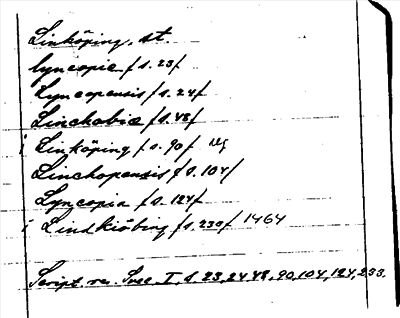 Linköping, st.
lyncopie /s. 23/
Lyncopensis /s. 24/
Linchobie /s. 48/
i Linköping /s. 90/
Linchopensis /s. 104/
Lyncopia /s. 124/
i Lindkiöbing /s. 233/ 1464
Script. rer. Suec. I, s. 23, 24, 48, 90, 104, 124, 233.